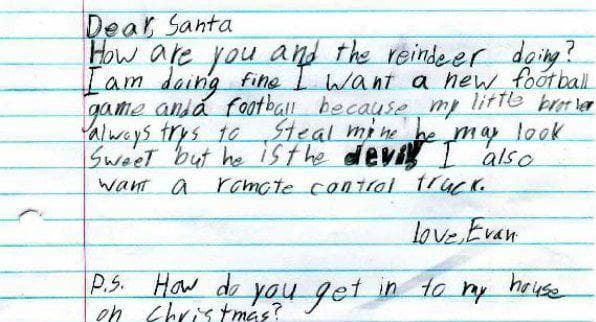 Dear, Santa
How are you and the reindeer doing?
I am doing fine I want a new football
game and a football because my little brother
always trys to steal mine he may look
sweet but he is the devil I also
want a remote control truck.
love, Evan
P.S. How do you get in to my house
on christmas?